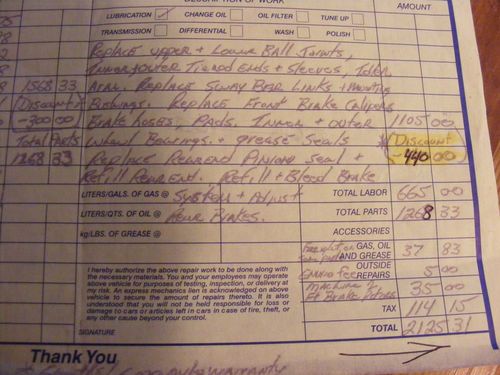 DESCRIPTION OF WORK AMOUNT
LUBRICATION CHANGE OIL OIL FILTER TUNE UP
TRANSMISSION DIFFERENTIAL WASH POLISH
Replace upper + Lower Ball Joints,
Inner + outer Tie rod Ends + Sleeves, Idler
1568 33 Arm. Replace Sway Bar Links + Mounting
(Discount Bushings. Replace Front Brake Calipers
-300 00 Brake hoses, Pads, Inner + outer 1105 00
Total Parts Wheel Bearings + grease Seals *Discount
1268 33 Replace Rearend Pinion Seal + -440 00
Refill Rearend. Refill + Bleed Brake
LITERS/GALS. OF GAS @ System + Adjust TOTAL LABOR 665 00
LITERS/QTS. OF OIL @ Rear Brakes. TOTAL PARTS 1268 33
kg/LBS. OF GREASE @ ACCESSORIES
GAS, OIL AND GREASE 37 83
OUTSIDE REPAIRS 5 00
Machine 35 00
Ft Brake Rotors
TAX 114 15
TOTAL 2125 31
I hereby authorize the above repair work to be done along with
the necessary materials. You and your employees may operate
above vehicle for purposes of testing, inspection, or delivery
at my risk. An express mechanics lien is acknowledged on above
vehicle to secure the amount of repairs thereto. It is also
understood that you will not be held responsible for loss or
damage to cars or articles left in cars in case of fire, theft, or
any other cause beyond your control.
SIGNATURE
Thank You